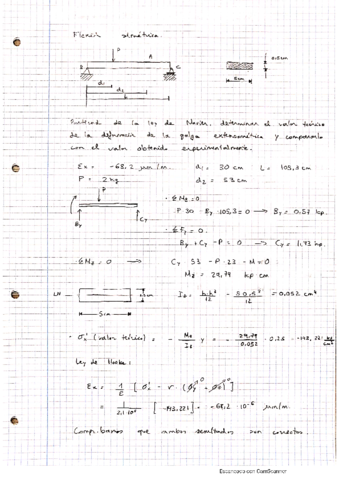 Flexión simétrica
P
A
B
C
d1
d2
L
0.5cm
5cm
Partiendo de la ley de Navier, determinar el valor teórico
de la deformación de la galga extensométrica y compararlo
con el valor obtenido experimentalmente.
Ex = -68,2 μm/m. d1 = 30 cm L = 105,3 cm
P = 2 kg d2 = 53 cm
P
By
Cy
· ΣMc = 0
P · 30 - By · 105,3 = 0 → By = 0.57 kp.
· ΣFy = 0.
By + Cy - P = 0 → Cy = 1,43 kp.
ΣMz = 0 → Cy · 53 - P · 23 - M = 0
Mz = 29,79 kp cm
LN
5cm
Iz = b·h³/12 = 5·0.5³/12 = 0.052 cm⁴
· σx (valor teórico) = - Mz/Iz y = - 29,79/0.052 · 0,25 = -143,221 kp/cm²
Ley de Hooke:
Ex = 1/E [σx - ν (σy + σz)]
= 1/2.1·10⁶ [-143.221] = -68,2 · 10⁻⁶ μm/m.
Comprobamos que ambos resultados son correctos.
Escaneado con CamScanner